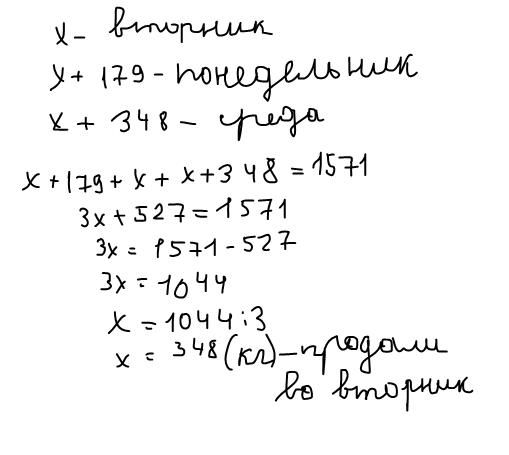 x - вторник
x + 179 - понедельник
x + 348 - среда
x + 179 + x + x + 348 = 1571
3x + 527 = 1571
3x = 1571 - 527
3x = 1044
x = 1044 : 3
x = 348 (кг) - продали
во вторник